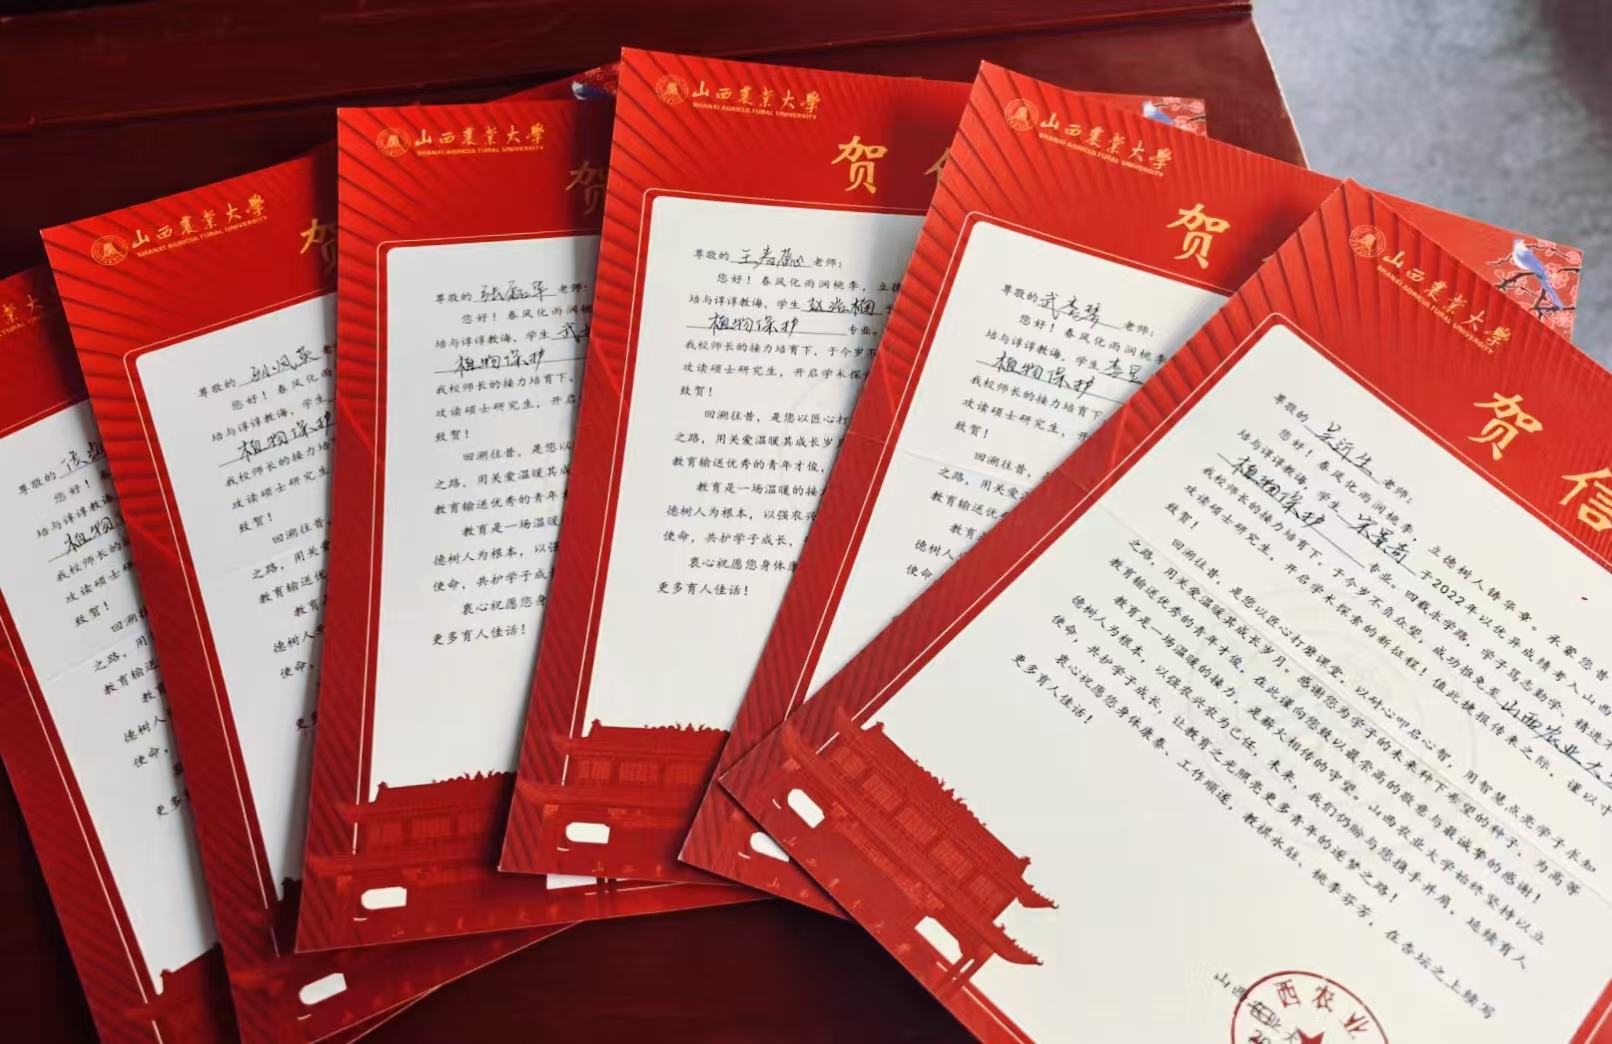 山西農業大學
SHANXI AGRICULTURAL UNIVERSITY
贺
尊敬的
您好！
培与谆谆教诲，
植物
我校师长的
攻读硕士研
致贺！
回溯往
之路，用
教育输送
教育
德树人
使命，
更多
山西農業大學
SHANXI AGRICULTURAL UNIVERSITY
贺
尊敬的 孙凤英 老
您好！春风
培与谆谆教诲，学生
植物保护
我校师长的接力培
攻读硕士研究生，
致贺！
回溯往昔，
之路，用关爱
教育输送优
教育
德树人
使命，
更多
山西農業大學
SHANXI AGRICULTURAL UNIVERSITY
贺
尊敬的 张磊华 老师：
您好！春风化雨润桃
培与谆谆教诲，学生 武
植物保护
我校师长的接力培育下，
攻读硕士研究生，开启
致贺！
回溯往昔，是您以
之路，用关爱温暖其成
教育输送优秀的青年
教育是一场温暖
德树人为根本，以强
使命，共护学子成
衷心祝愿您身
更多育人佳话！
山西農業大學
SHANXI AGRICULTURAL UNIVERSITY
贺
尊敬的 王春蕊 老师：
您好！春风化雨润桃李，立德
培与谆谆教诲，学生
植物保护 专业。
我校师长的接力培育下，于今岁不
攻读硕士研究生，开启学术探
致贺！
回溯往昔，是您以匠心打
之路，用关爱温暖其成长岁月
教育输送优秀的青年才俊，
教育是一场温暖的接
德树人为根本，以强农兴
使命，共护学子成长，
衷心祝愿您身体康
更多育人佳话！
山西農業大學
SHANXI AGRICULTURAL UNIVERSITY
贺
尊敬的 武秀琴 老师：
您好！春风化雨润桃李
培与谆谆教诲，学生 李昱
植物保护
我校师长的接力培育下
攻读硕士研究生，开
致贺！
回溯往昔，
之路，用关爱
教育输送优
教育
德树人
使命，
山西農業大學
SHANXI AGRICULTURAL UNIVERSITY
贺信
尊敬的 吴沂生 老师：
您好！春风化雨润桃李，立德树人铸华章。承蒙您昔
培与谆谆教诲，学生 宋景奇 于2022年以优异成绩考入山西
植物保护 专业。四载求学路，学子笃志勤学，精进不
我校师长的接力培育下，于今岁不负众望，成功推免至 山西农业大
攻读硕士研究生，开启学术探索的新征程！值此捷报传来之际，谨以寸
致贺！
回溯往昔，是您以匠心打磨课堂，以耐心叩启心智，用智慧点亮学子求知
之路，用关爱温暖其成长岁月。感谢您为学子的未来种下希望的种子，为高等
教育输送优秀的青年才俊，在此谨向您致以最崇高的敬意与最诚挚的感谢！
教育是一场温暖的接力，是薪火相传的守望。山西农业大学始终坚持以立
德树人为根本，以强农兴农为己任，未来，我们仍盼与您携手并肩，延续育人
使命，共护学子成长，让教育之光照亮更多青年的逐梦之路！
衷心祝愿您身体康泰、工作顺遂，教祺永驻，桃李芬芳，在杏坛之上续写
更多育人佳话！
山西农业大
西农业